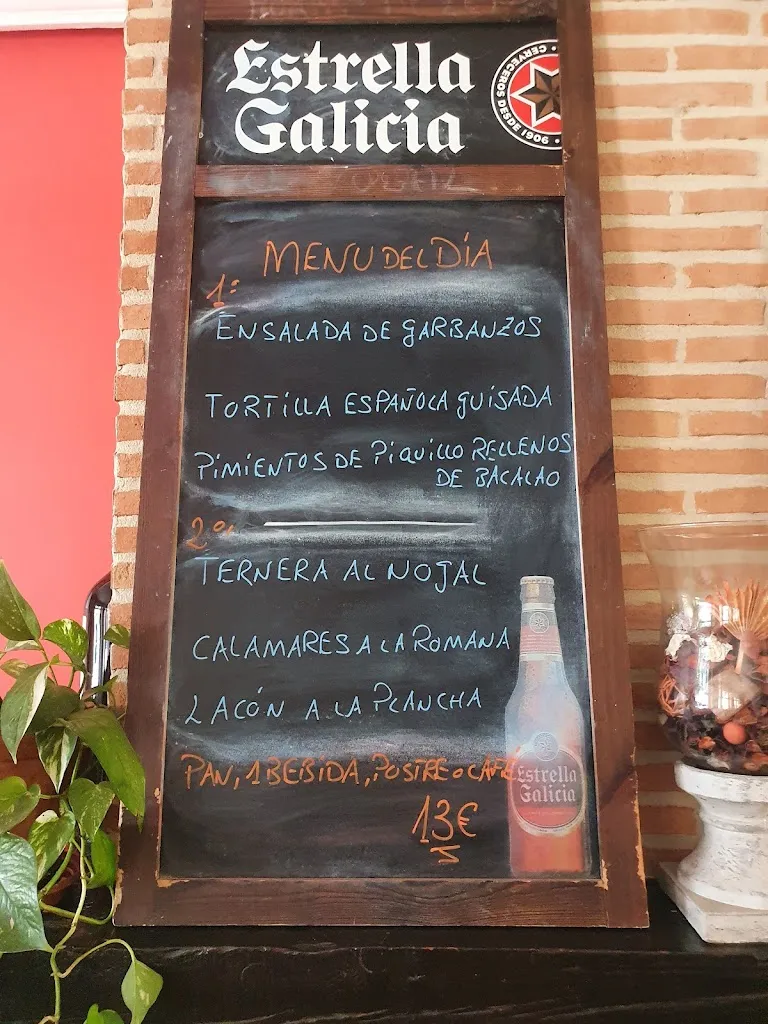 Estrella
Galicia
CERVECEROS DESDE 1906
MENU DEL DÍA
1º
ENSALADA DE GARBANZOS
TORTILLA ESPAÑOLA GUISADA
PIMIENTOS DE PIQUILLO RELLENOS
DE BACALAO
2º
TERNERA AL NOJAL
CALAMARES A LA ROMANA
LACÓN A LA PLANCHA
PAN, 1 BEBIDA, POSTRE O CAFE
13€
Estrella
Galicia